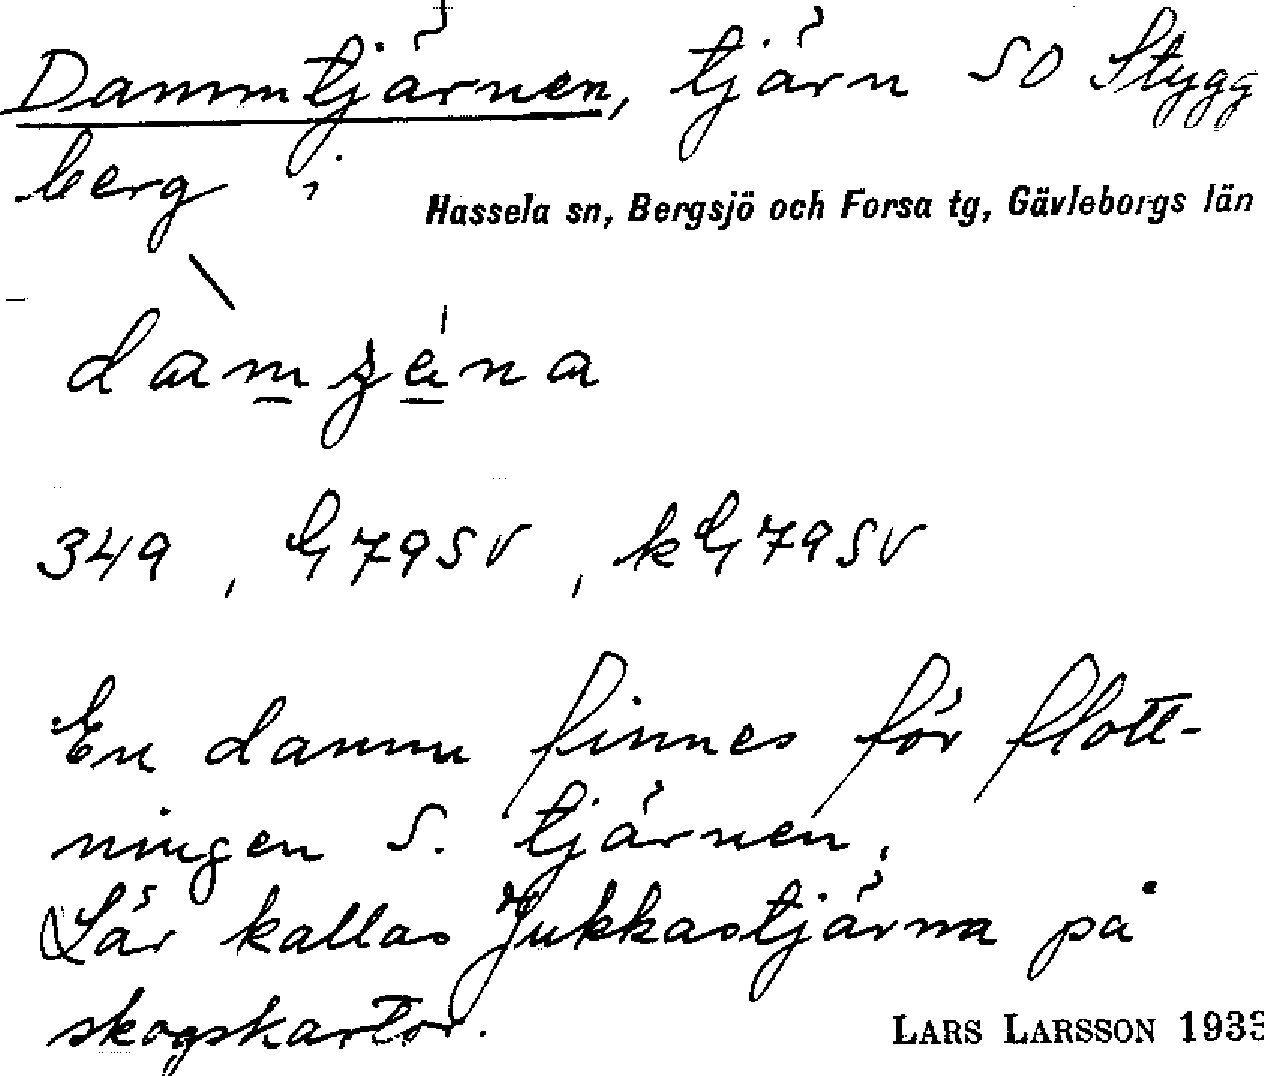 Dammtjärnen, tjärn SO Stygg
berg i
Hassela sn, Bergsjö och Forsa tg, Gävleborgs län
349, G79SV, kG79SV
En damm finnes för flott-
ningen S. tjärnen.
Lär kallas Jukkastjärna på
skogskartor.
LARS LARSSON 1933